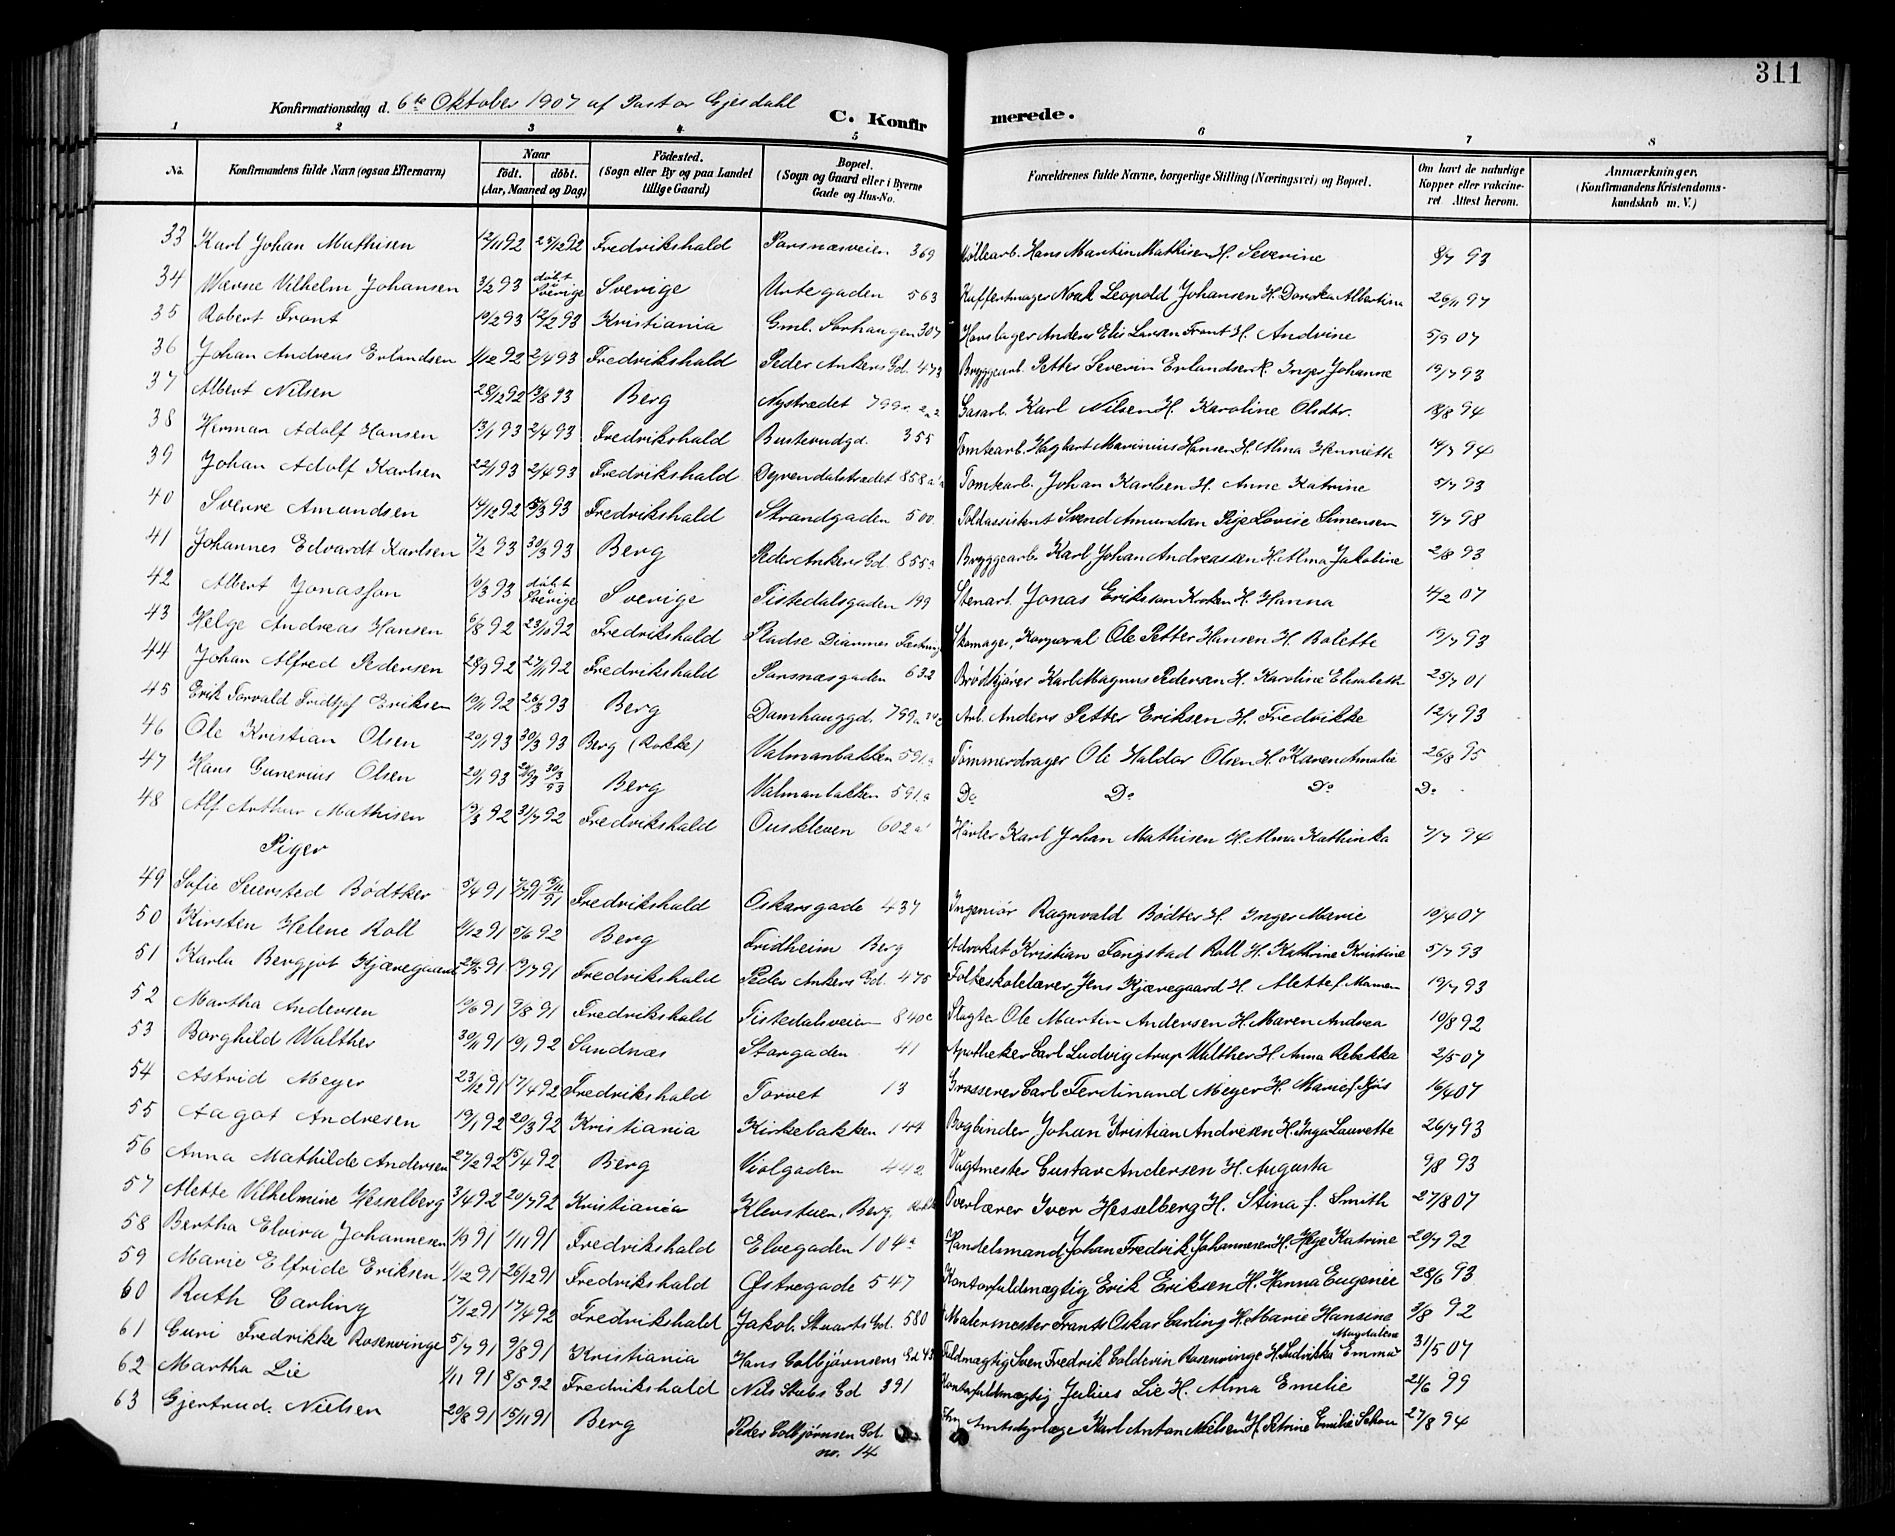 311
Konfirmationsdag d. 6te Oktober 1907 af Pastor Gjesdahl
C. Konfirmerede.
1 2 3 4 5 6 7 8
No. Konfirmandens fulde Navn (ogsaa Efternavn) Naar födt. döbt. (Aar, Maaned og Dag) Födested. (Sogn eller By og paa Landet tillige Gaard) Bopæl. (Sogn og Gaard eller i Byerne Gade og Hus-No. Forældrenes fulde Navne, borgerlige Stilling (Næringsvei) og Bopæl. Om havt de naturlige Kopper eller vakcineret. Attest herom. Anmærkninger. (Konfirmandens Kristendomskundskab m. V.)
33 Karl Johan Mathisen 12/11 92 25/12 92 Fredrikshald 369 Møllearb. Hans Martin Mathisen H. Severine 8/7 93
34 Werne Vilhelm Johansen 3/2 93 döbt i Sverige Sverige Urtegaden 563 Noak Leopold Johansen H. Albertina 26/11 97
35 Robert Front 19/2 93 12/2 93 Kristiania Gml. 307 Hovslager Anders Elis Larsen Front H. Andrine 5/9 07
36 Johan Andreas Erlandsen 1/12 92 2/4 93 Fredrikshald Peder Ankers Gd. 473 Bryggearb. Petter Severin Erlandsen H. Inger Johanne 19/7 93
37 Albert Nilsen 28/12 92 13/8 93 Berg Nystrædet 799 Gasarb. Karl Nilsen H. Karoline Olsdtr. 18/8 94
38 Herman Adolf Hansen 13/1 93 2/4 93 Fredrikshald Busterudgd. 355 Tomtearb. Hagbart Marinius Hansen H. Alma Henriette 14/7 94
39 Johan Adolf Karlsen 22/1 93 2/4 93 Fredrikshald Dyrendalstrædet 858 Tomtearb. Johan Karlsen H. Anne Katrine 5/7 93
40 Sverre Amundsen 14/12 92 5/3 93 Fredrikshald Strandgaden 500 Toldassistent Svend Amundsen Pige Lovise Simensen 9/7 98
41 Johannes Edvardt Karlsen 7/2 93 30/3 93 Berg Peder Ankers Gd. 855 a Bryggearb. Karl Johan Andreassen H. Alma Jakobine 2/8 93
42 Albert Jonasson 10/3 93 döbt i Sverige Sverige Tistedalsgaden 199 Stenarb. Jonas Eriksson H. Hanna 4/2 07
43 Helge Andreas Hansen 6/8 92 23/10 92 Fredrikshald Pladse Diannes Fæstning Skomager, Korporal Ole Petter Hansen H. Bolette 19/7 93
44 Johan Alfred Pedersen 28/9 92 27/11 92 Fredrikshald 632 Brødkjører Karl Magnus Pedersen H. Karoline Elisabeth 25/7 01
45 Erik Torvald Fridtjof Eriksen 19/11 92 26/3 93 Berg Damhauggd. 799 Arb. Anders Petter Eriksen H. Fredrikke 12/7 93
46 Ole Kristian Olsen 20/1 93 30/3 93 Berg (Rokke) Valmanbakken 591 a Tømmerdrager Ole Haldor Olsen H. Karen Amalie 26/8 95
47 Hans Gunerius Olsen 20/1 93 30/3 93 Berg Valmanbakken 591 a Do Do Do Do
48 Alf Arthur Mathisen 19/3 92 31/7 92 Fredrikshald Ouskleven 602 a Høvler Karl Johan Mathisen H. Alma Kathinka 7/7 94
Piger
49 Sofie Seiersted Bödtker 5/4 91 15/11 91 Fredrikshald Oskarsgade 437 Ingeniör Ragnvald Bödter H. Inger Marie 10/4 07
50 Kirsten Helene Roll 1/12 91 5/6 92 Berg Fridheim Berg Advokat Kristian Fangstad Roll H. Kathrine Kristine 5/7 93
51 Karla Bergjot Kjæregaard 24/5 91 19/7 91 Fredrikshald Peder Ankers Gd. 475 Folkeskolelærer Jens Kjæregaard H. Alette f. Mamen 19/7 93
52 Martha Andersen 19/6 91 9/8 91 Fredrikshald Tistedalsveien 840 c Slagter Ole Martin Andersen H. Maren Andrea 10/8 92
53 Borghild Walther 30/11 91 19/1 92 Sandnæs Storgaden 41 Apotheker Carl Ludvig Arup Walther H. Anna Rebekka 2/5 07
54 Astrid Meyer 23/12 91 17/4 92 Fredrikshald Torvet 13 Grosserer Carl Ferdinand Meyer H. Marie f. 16/4 07
55 Aagot Andresen 19/1 92 20/3 92 Kristiania Kirkebakken 144 Bogbinder Johan Kristian Andresen H. Inga Laurette 26/7 93
56 Anna Mathilde Andersen 27/2 92 15/4 92 Berg Violgaden 442 Vagtmester Gustav Andersen H. Augusta 9/8 93
57 Alette Vilhelmine Hesselberg 3/4 92 20/7 92 Kristiania Klerstuen, Berg, Overlærer Iver Hesselberg H. Stina f. Smith 27/8 07
58 Bertha Elvira Johannesen 1/9 91 1/11 91 Fredrikshald Elvegaden 104 a Handelsmand Johan Fredrik Johannesen H. Helge Katrine 20/7 92
59 Marie Elfride Eriksen 1/12 91 26/12 91 Fredrikshald Østregade 547 Kontorfuldmægtig Erik Eriksen H. Hanna Eugenie 28/6 93
60 Ruth Carling 17/12 91 17/4 92 Fredrikshald Jakob Stuarts Gd. 580 Malermester Frants Oskar Carling H. Marie Hansine 3/8 92
61 Guri Fredrikke Rosenvinge 5/7 91 9/8 91 Kristiania Hans Colbjørnsens Gd Fuldmægtig Sven Fredrik Coldevin Rosenvinge H. Ludvikka Emma Magdalene 31/5 07
62 Martha Lie 1/11 91 8/5 92 Fredrikshald Nils Stubs Gd 391 Kontorfuldmægtig Julius Lie H. Alma Emilie 21/6 99
63 Gjertrud Nielsen 20/8 91 15/11 91 Berg Peder Colbjørnsen Gd. no. 14 Amtsdyrlæge Karl Anton Nielsen H. Petrine Emilie Schou 27/8 94